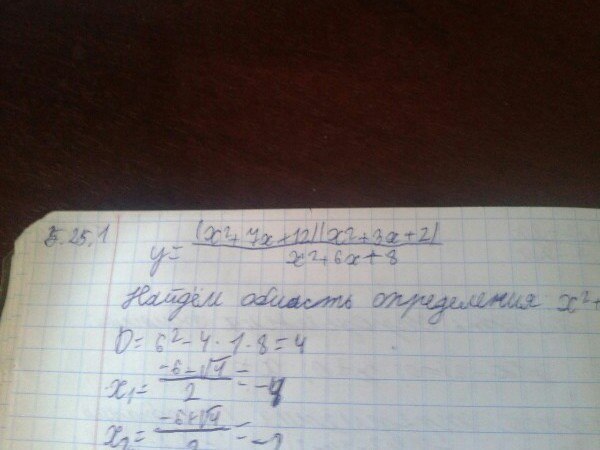 5.25.1
y= (x²+7x+12)(x²+3x+2)
x²+6x+8
Найдём область определения x²+
D= 6²-4·1·8=4
x₁= -6-√4 / 2 = -4
x₂= -6+√4 / 2 = -2